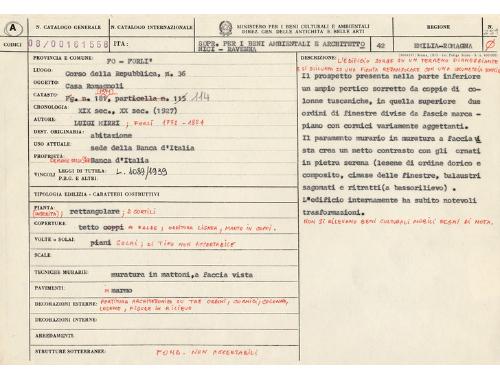 A
N. CATALOGO GENERALE
N. CATALOGO INTERNAZIONALE
MINISTERO PER I BENI CULTURALI E AMBIENTALI
DIREZ. GEN. DELLE ANTICHITÀ E BELLE ARTI
REGIONE
N.
CODICI
08/00161558
ITA:
SOPR. PER I BENI AMBIENTALI E ARCHITETTO
NICI - RAVENNA
42
EMILIA-ROMAGNA
PROVINCIA E COMUNE:
FO - FORLI'
LUOGO:
Corso della Repubblica, n. 36
OGGETTO:
Casa Romagnoli
CATASTO:
Fg. n. 187, particella n. 115 114
CRONOLOGIA
XIX sec., XX sec. (1927)
AUTORE:
LUIGI MIRRI
DEST. ORIGINARIA:
abitazione
USO ATTUALE:
sede della Banca d'Italia
PROPRIETÀ:
Banca d'Italia
VINCOLI
LEGGI DI TUTELA:
L. 1089/1939
P.R.G. E ALTRI:
TIPOLOGIA EDILIZIA - CARATTERI COSTRUTTIVI
PIANTA:
rettangolare; 2 CORTILI
COPERTURE:
tetto coppi A FALDE; ORDITURA LIGNEA, MANTO IN COPPI.
VOLTE o SOLAI:
piani SOLAI; DI TIPO NON ACCERTABILE
SCALE
TECNICHE MURARIE:
muratura in mattoni, a faccia vista
PAVIMENTI:
marmo
DECORAZIONI ESTERNE:
PARTITURA ARCHITETTONICA SU TRE ORDINI, CORNICI, COLONNE,
LESENE, FIGURE IN RILIEVO
DECORAZIONI INTERNE:
ARREDAMENTI:
STRUTTURE SOTTERRANEE:
FOND. NON ACCERTABILI
DESCRIZIONE:
L'EDIFICIO SORGE SU UN TERRENO PIANEGGIANTE
SI SVILUPPA SU UNA PIANTA RETTANGOLARE CON UNA GEOMETRIA SEMPLICE
Il prospetto presenta nella parte inferiore
un ampio portico sorretto da coppie di co-
lonne tuscaniche, in quella superiore due
ordini di finestre divise da fascie marca-
piano con cornici variamente aggettanti.
Il paramento murario in muratura a faccia vi
sta crea un netto contrasto con gli ornati
in pietra serena (lesene di ordine dorico e
composito, cimase delle finestre, balaustri
sagomati e ritratti(a bassorilievo).
L'edificio internamente ha subito notevoli
trasformazioni.
NON SI RILEVANO BENI CULTURALI MOBILI DEGNI DI NOTA.